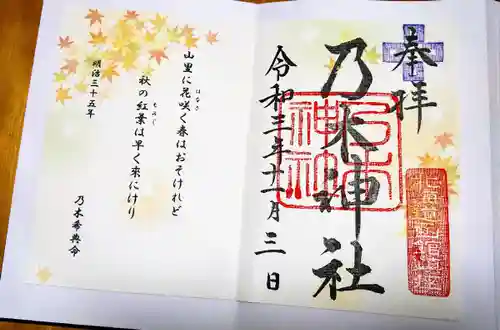 奉拝
乃木神社
令和三年十一月三日
山里に花咲く春はおそけれど
はなさ
秋の紅葉は早く来にけり
もみぢ
明治三十五年
乃木希典命
乃木神社